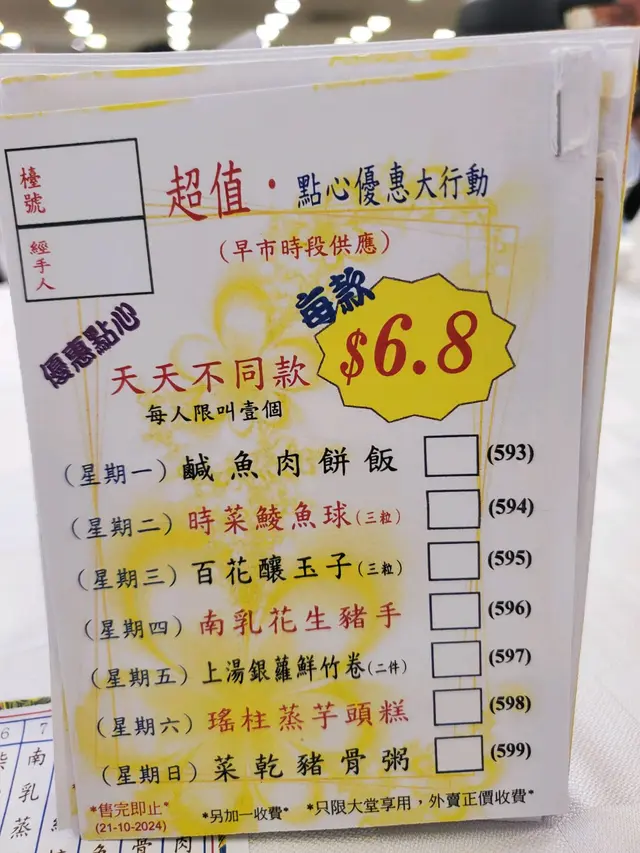 檯號
經手人
超值・點心優惠大行動
（早市時段供應）
優惠點心
每款
$6.8
天天不同款
每人限叫壹個
（星期一）鹹魚肉餅飯 (593)
（星期二）時菜鯪魚球（三粒） (594)
（星期三）百花釀玉子（三粒） (595)
（星期四）南乳花生豬手 (596)
（星期五）上湯銀蘿鮮竹卷（二件） (597)
（星期六）瑤柱蒸芋頭糕 (598)
（星期日）菜乾豬骨粥 (599)
*售完即止* *另加一收費* *只限大堂享用，外賣正價收費*
(21-10-2024)
6 7
南乳蒸